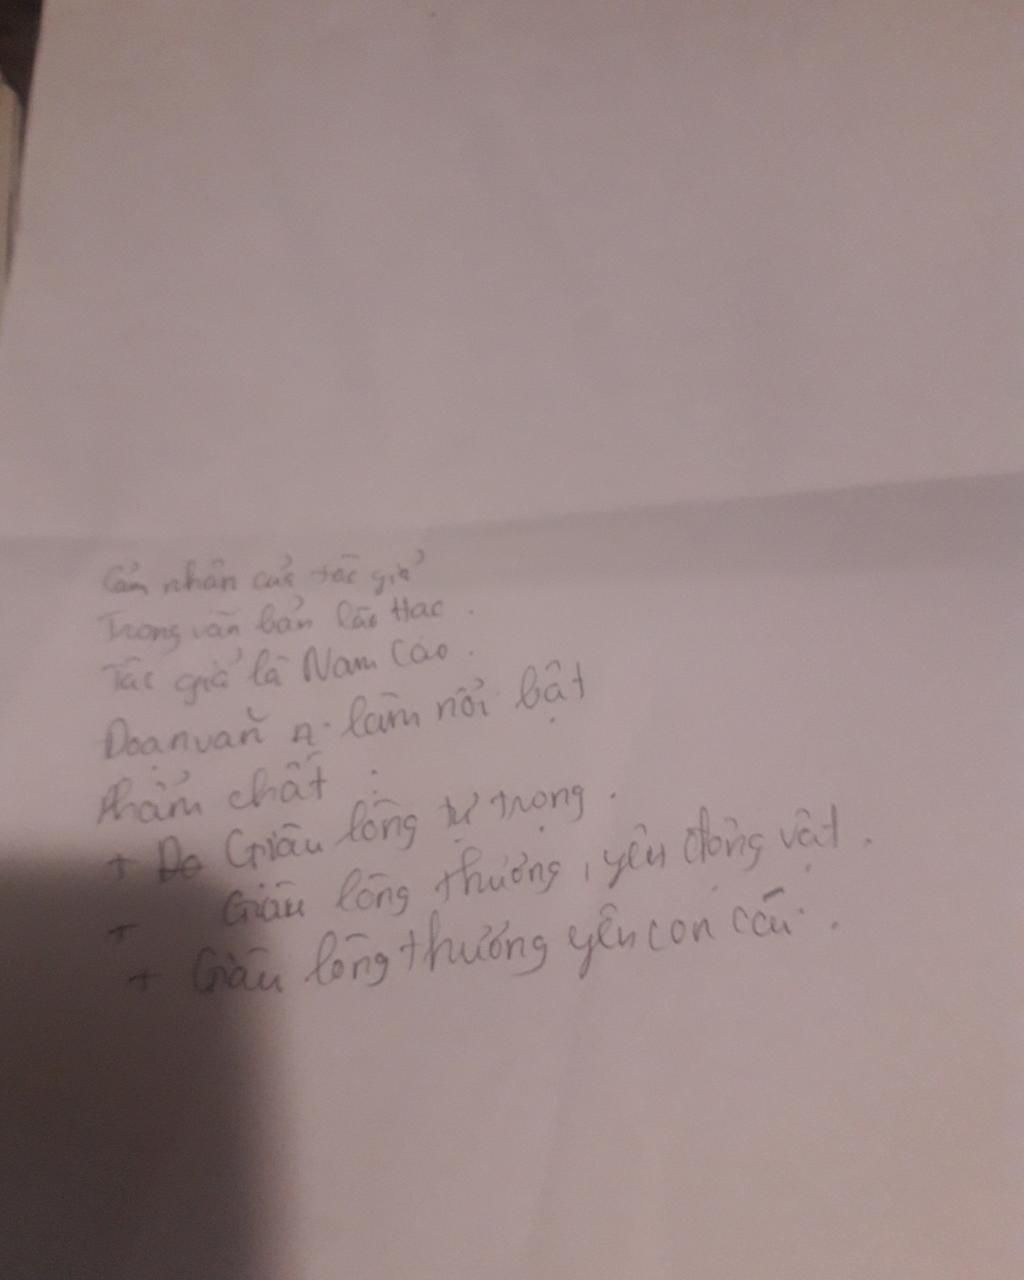 Cảm nhân của tác giả
Trong văn bản lão Hac.
Tác giả là Nam Cao.
Đoạn văn n. làm nổi bật
Phẩm chất :
+ Do Giàu lòng tự trọng.
+ Giàu lòng thương, yêu động vật.
+ Giàu lòng thương yêu con cái.